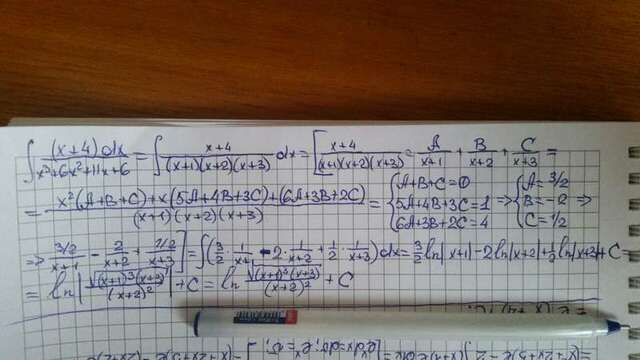 ∫ (x+4)dx / (x³+6x²+11x+6) = ∫ (x+4) / ((x+1)(x+2)(x+3)) dx = [ (x+4) / ((x+1)(x+2)(x+3)) = A/(x+1) + B/(x+2) + C/(x+3) =
= (x²(A+B+C)+x(5A+4B+3C)+(6A+3B+2C)) / ((x+1)(x+2)(x+3)) = { A+B+C=0; 5A+4B+3C=1; 6A+3B+2C=4 ⇒ { A=3/2; B=-2; C=1/2 ⇒
⇒ (3/2)/(x+1) - 2/(x+2) + (1/2)/(x+3) ] = ∫(3/2 · 1/(x+1) - 2·1/(x+2) + 1/2 · 1/(x+3))dx = 3/2 ln|x+1| - 2ln|x+2| + 1/2 ln|x+3| + C =
= ln| √((x+1)³(x+3)) / (x+2)² | + C = ln √((x+1)³(x+3)) / (x+2)² + C